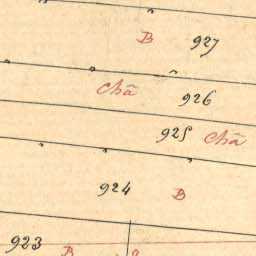 B 927
Châ 926
925 Châ
924 B
923 B